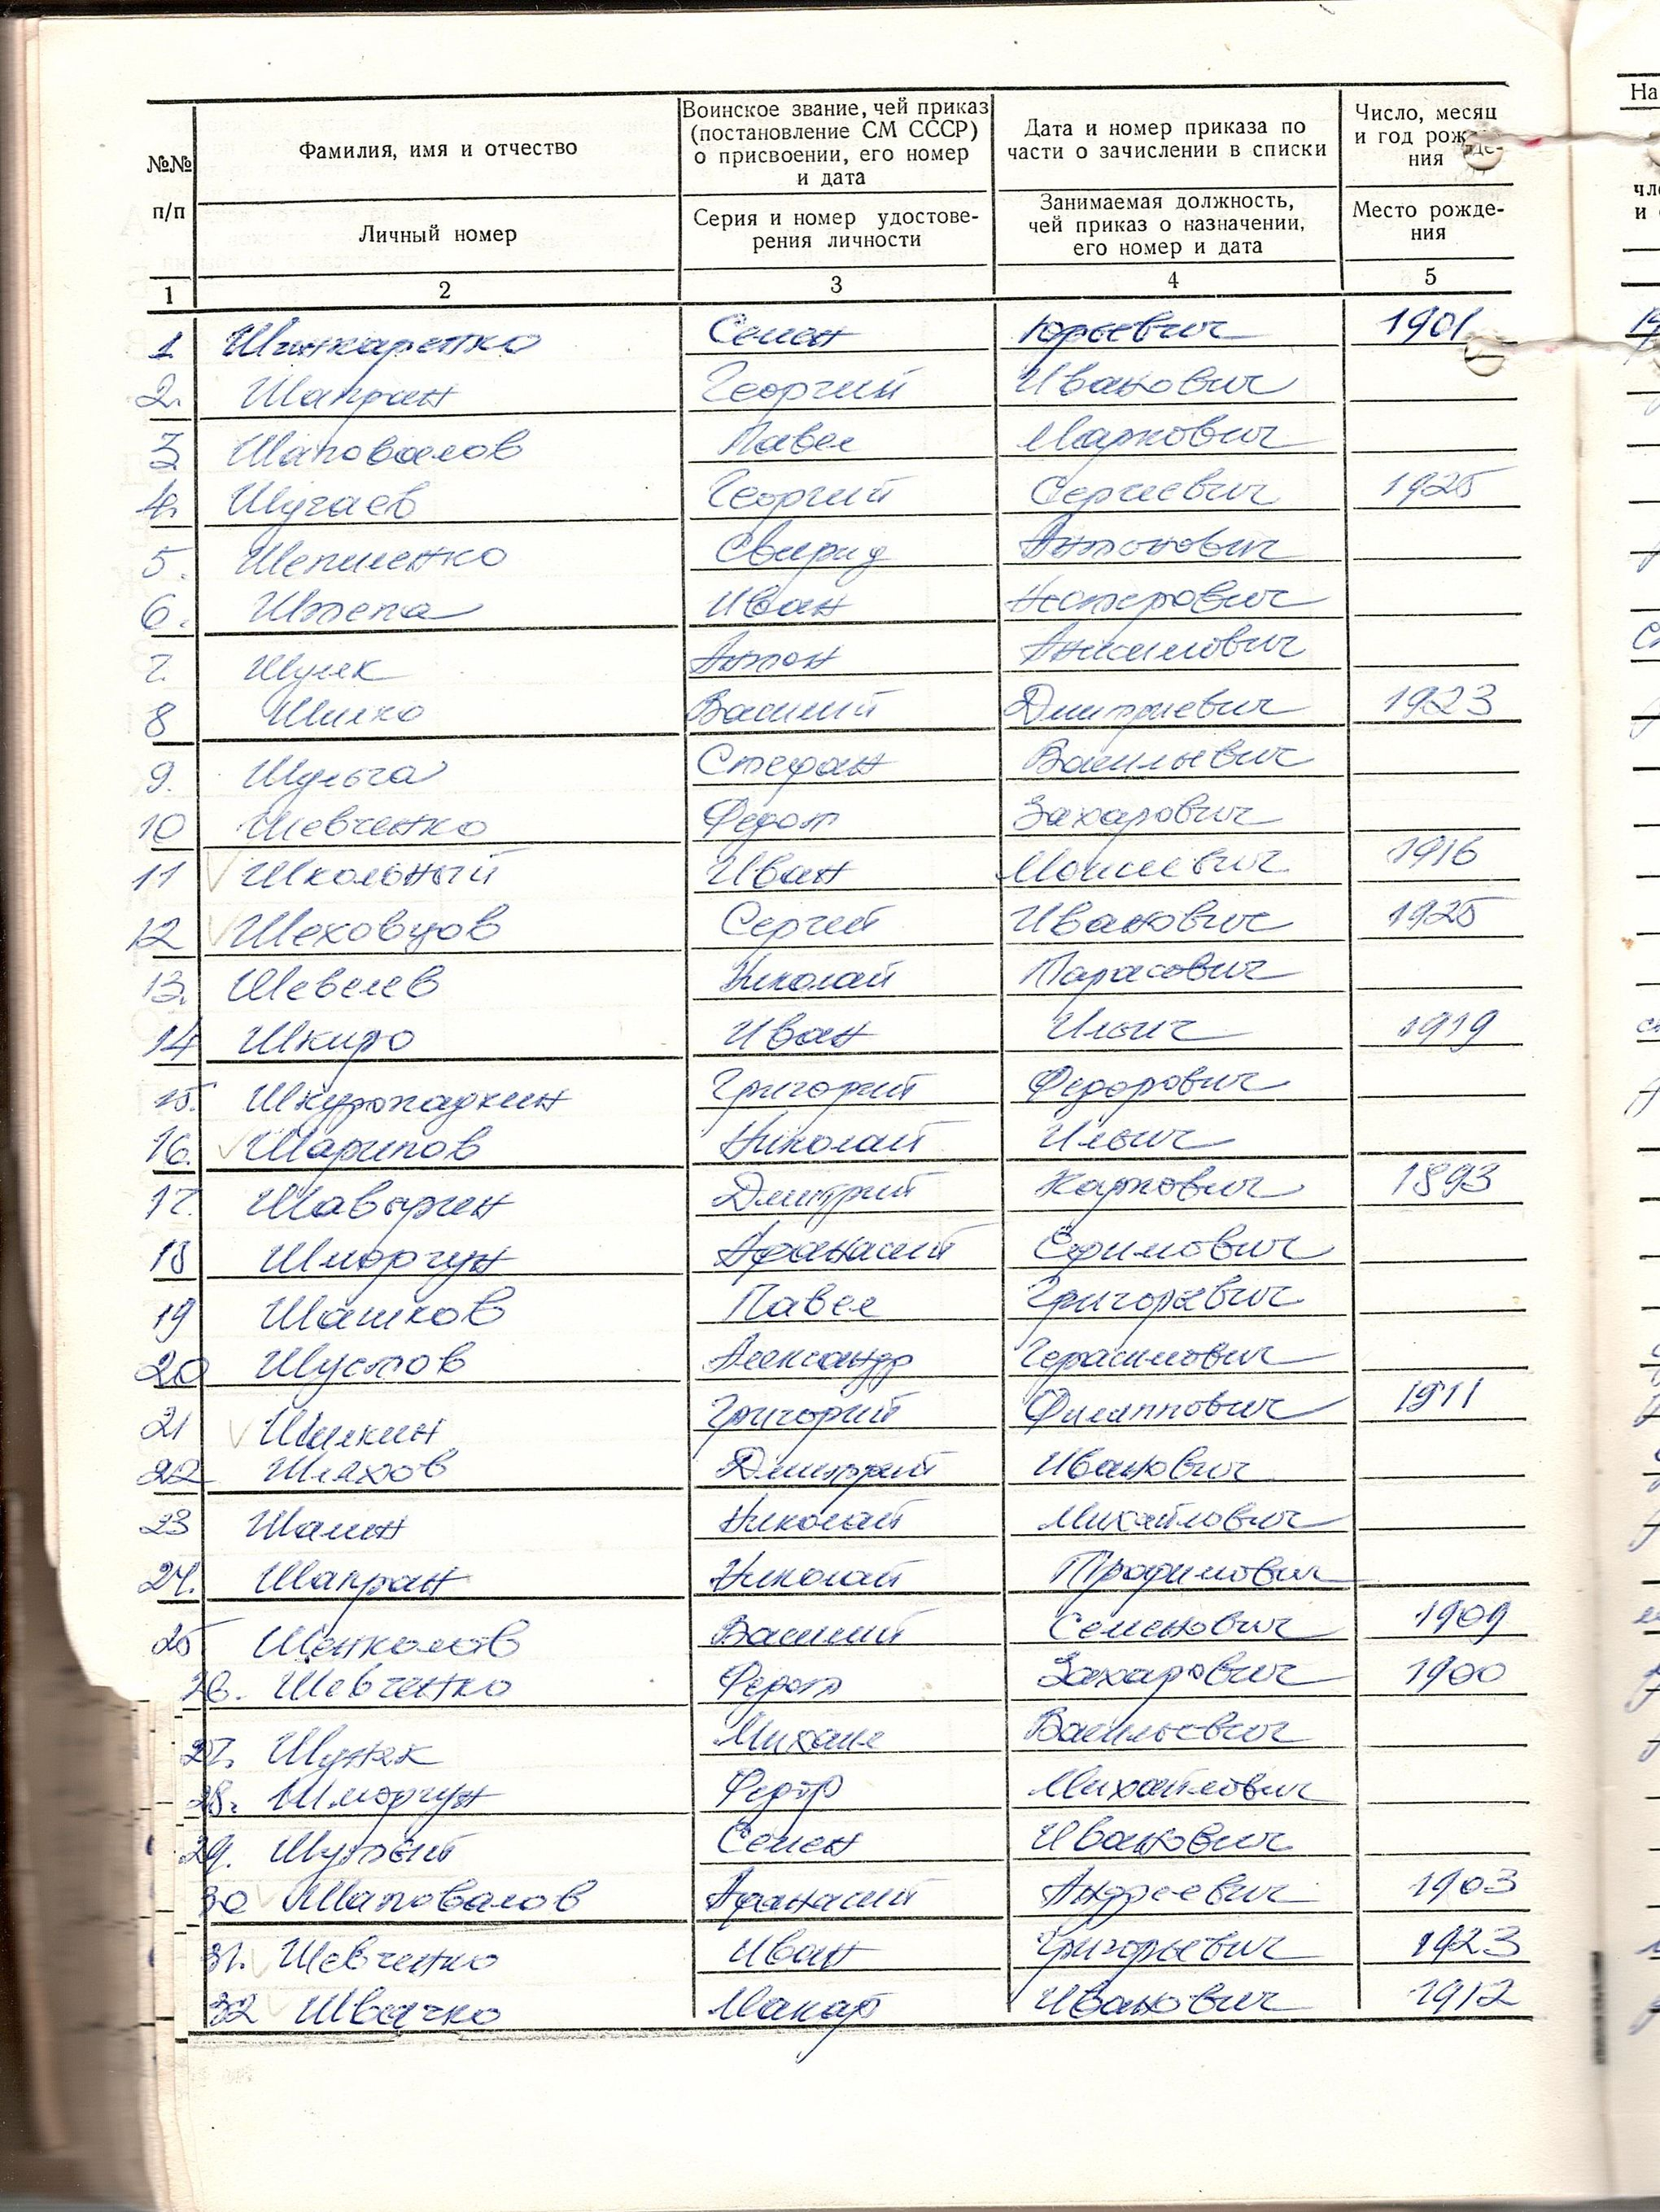 №№
п/п
Фамилия, имя и отчество
Личный номер
Воинское звание, чей приказ
(постановление СМ СССР)
о присвоении, его номер
и дата
Серия и номер удостове-
рения личности
Дата и номер приказа по
части о зачислении в списки
Занимаемая должность,
чей приказ о назначении,
его номер и дата
Число, месяц
и год рожде-
ния
Место рожде-
ния
1 2 3 4 5
1 Шинкаренко Семен Юрьевич 1901
2. Шапран Георгий Иванович
3 Шаповалов Павел Маркович
4. Шугаев Георгий Сергиевич 1925
5. Шепиленко Свирид Антонович
6. Штепа Иван Несторович
7. Шулик Антон Анисимович
8 Шилко Василий Дмитриевич 1923
9. Шульга Стефан Васильевич
10 Шевченко Федот Захарович
11 Школьный Иван Моисеевич 1916
12 Шеховцов Сергей Иванович 1925
13. Шевелев Николай Тарасович
14 Шкиро Иван Ильич 1919
15. Шкуропадкин Григорий Федорович
16. Шарипов Николай Ильич
17. Шавырин Дмитрий Карпович 1893
18 Шморгун Афанасий Ефимович
19 Шашков Павел Григорьевич
20 Шустов Александр Герасимович
21 Шилкин Григорий Филиппович 1911
22 Шляхов Дмитрий Иванович
23 Шалин Николай Михайлович
24. Шапран Николай Трофимович
25 Василий Семенович 1909
26. Шевченко Федот Захарович 1900
27. Михаил Васильевич
28. Шморгун Федор Михайлович
29. Семен Иванович
30 Шаповалов Афанасий Андреевич 1903
31. Шевченко Иван Григорьевич 1923
32 Швачко Макар Иванович 1912